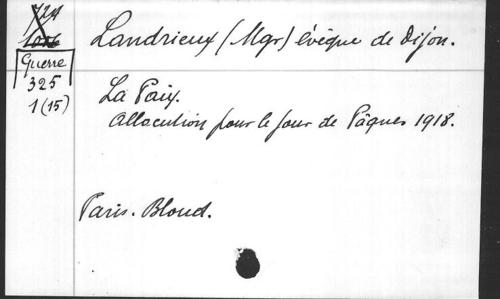 Landrieux (Mgr) évêque de Dijon.
Guerre
325
1(15)
La Paix.
Allocution pour le jour de Pâques 1918.
Paris. Bloud.